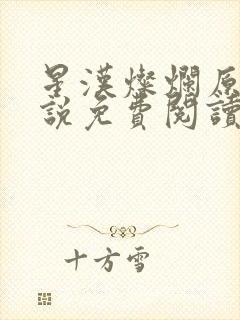 星漢燦爛原
說免費閱讀
十方雪